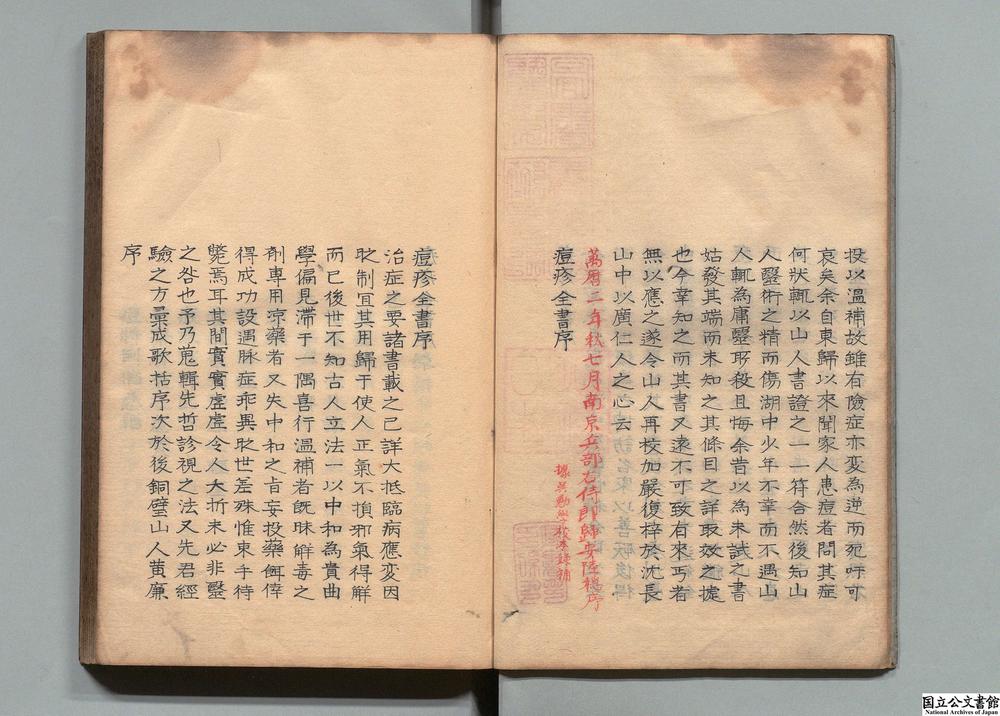 投以溫補故雖有險症亦変為逆而死吁可
哀矣余自東歸以來聞家人患痘者問其症
何狀輒以山人書證之一一符合然後知山
人醫術之精而傷湖中少年不幸而不遇山
人輒為庸醫所殺且悔余昔以為未試之書
姑發其端而未知之其條目之詳取效之捷
也今幸知之而其書又遠不可致有來丐者
無以應之遂令山人再校加嚴復梓於沈長
山中以廣仁人之心去
萬曆二年秋七月南京兵部右侍郎歸安陸穏序
據吳勉學校本錄補
痘疹全書序
痘疹全書序
治症之要諸書載之已詳大抵臨病應変因
時制宜其用歸于使人正氣不損邪氣得解
而已後世不知古人立法一以中和為貴曲
學偏見滞于一隅喜行溫補者旣昧解毒之
劑専用凉藥者又失中和之旨妄投藥餌倖
得成功設遇脉症乖異時世差殊惟束手待
斃焉耳其間實實虛虛令人大折未必非醫
之咎也予乃蒐輯先哲診視之法又先君經
驗之方彙成歌括序次於後銅壁山人黄廉
序
国立公文書館
National Archives of Japan